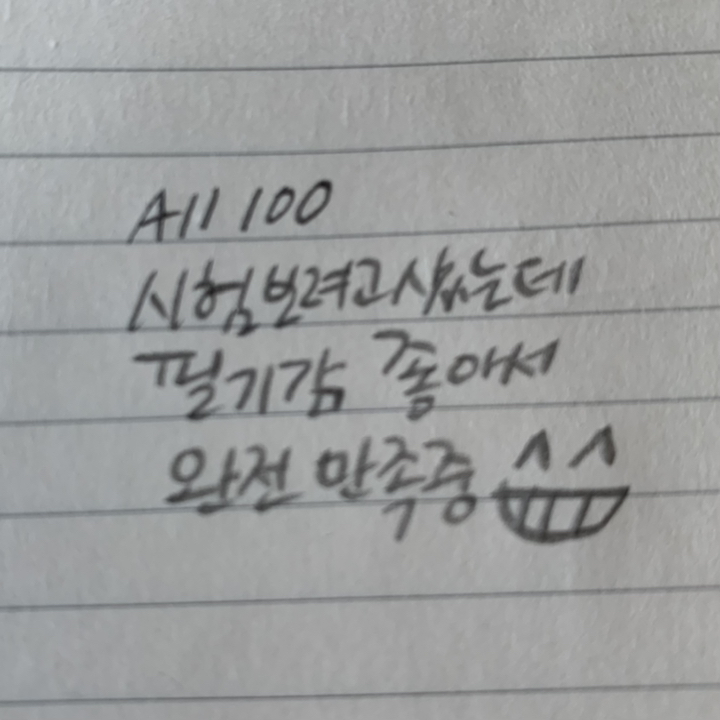 All 100
시험보려고샀는데
필기감 좋아서
완전 만족중 ^^